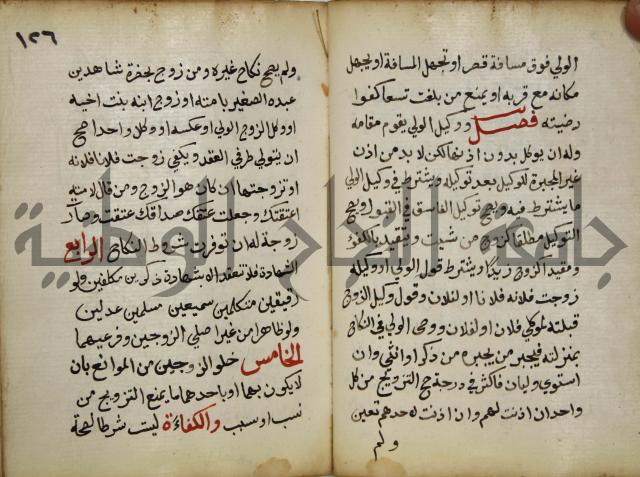 الولي فوق مسافة قصر او تجهل المسافة او يجهل
مكانه مع قربه او يمنع من بلغت تسعا كفوا
رضيته فصل ووكيل الولي يقوم مقامه
وله ان يوكل بدون اذنها لكن لا بد من اذن
غير المجبرة للوكيل بعد توكيله ويشترط في وكيل الولي
ما يشترط فيه ويصح توكيل الفاسق في القبول ويصح
التوكيل مطلقا كزوج من شيت ويتقيد بالكفؤ
ومقيدا كزوج زيدا ويشترط قول الولي او وكيله
زوجت فلانة فلانا او لفلان وقول وكيل الزوج
قبلته لموكلي فلان او لفلان ووصي الولي في النكاح
بمنزلته فيجبر من يجبره من ذكر او انثى وان
استوى وليان فاكثر في درجة صح التزويج من كل
واحد ان اذنت لهم وان اذنت لاحدهم تعين
ولم
١٢٦
ولم يصح نكاح غيره ومن زوج بحضرة شاهدين
عبده الصغير بامته او زوج ابنه بنت اخيه
او وكل الزوج الولي او عكسه او وكلا واحدا صح
ان يتولى طرفي العقد ويكفي زوجت فلانا فلانة
او تزوجتها ان كان هو الزوج ومن قال لامته
اعتقتك وجعلت عتقك صداقك عتقت وصارت
زوجة له ان توفرت شروط النكاح الرابع
الشهادة فلا تنعقد الا بشهادة ذكرين مكلفين ولو
رقيقين متكلمين سميعين مسلمين عدلين
ولو ظاهرا من غير اصلي الزوجين وفرعيهما
الخامس خلو الزوجين من الموانع بان
لا يكون بهما او باحدهما ما يمنع التزويج من
نسب او سبب والكفاءة ليست شرطا لصحة
جامعة النجاح الوطنية